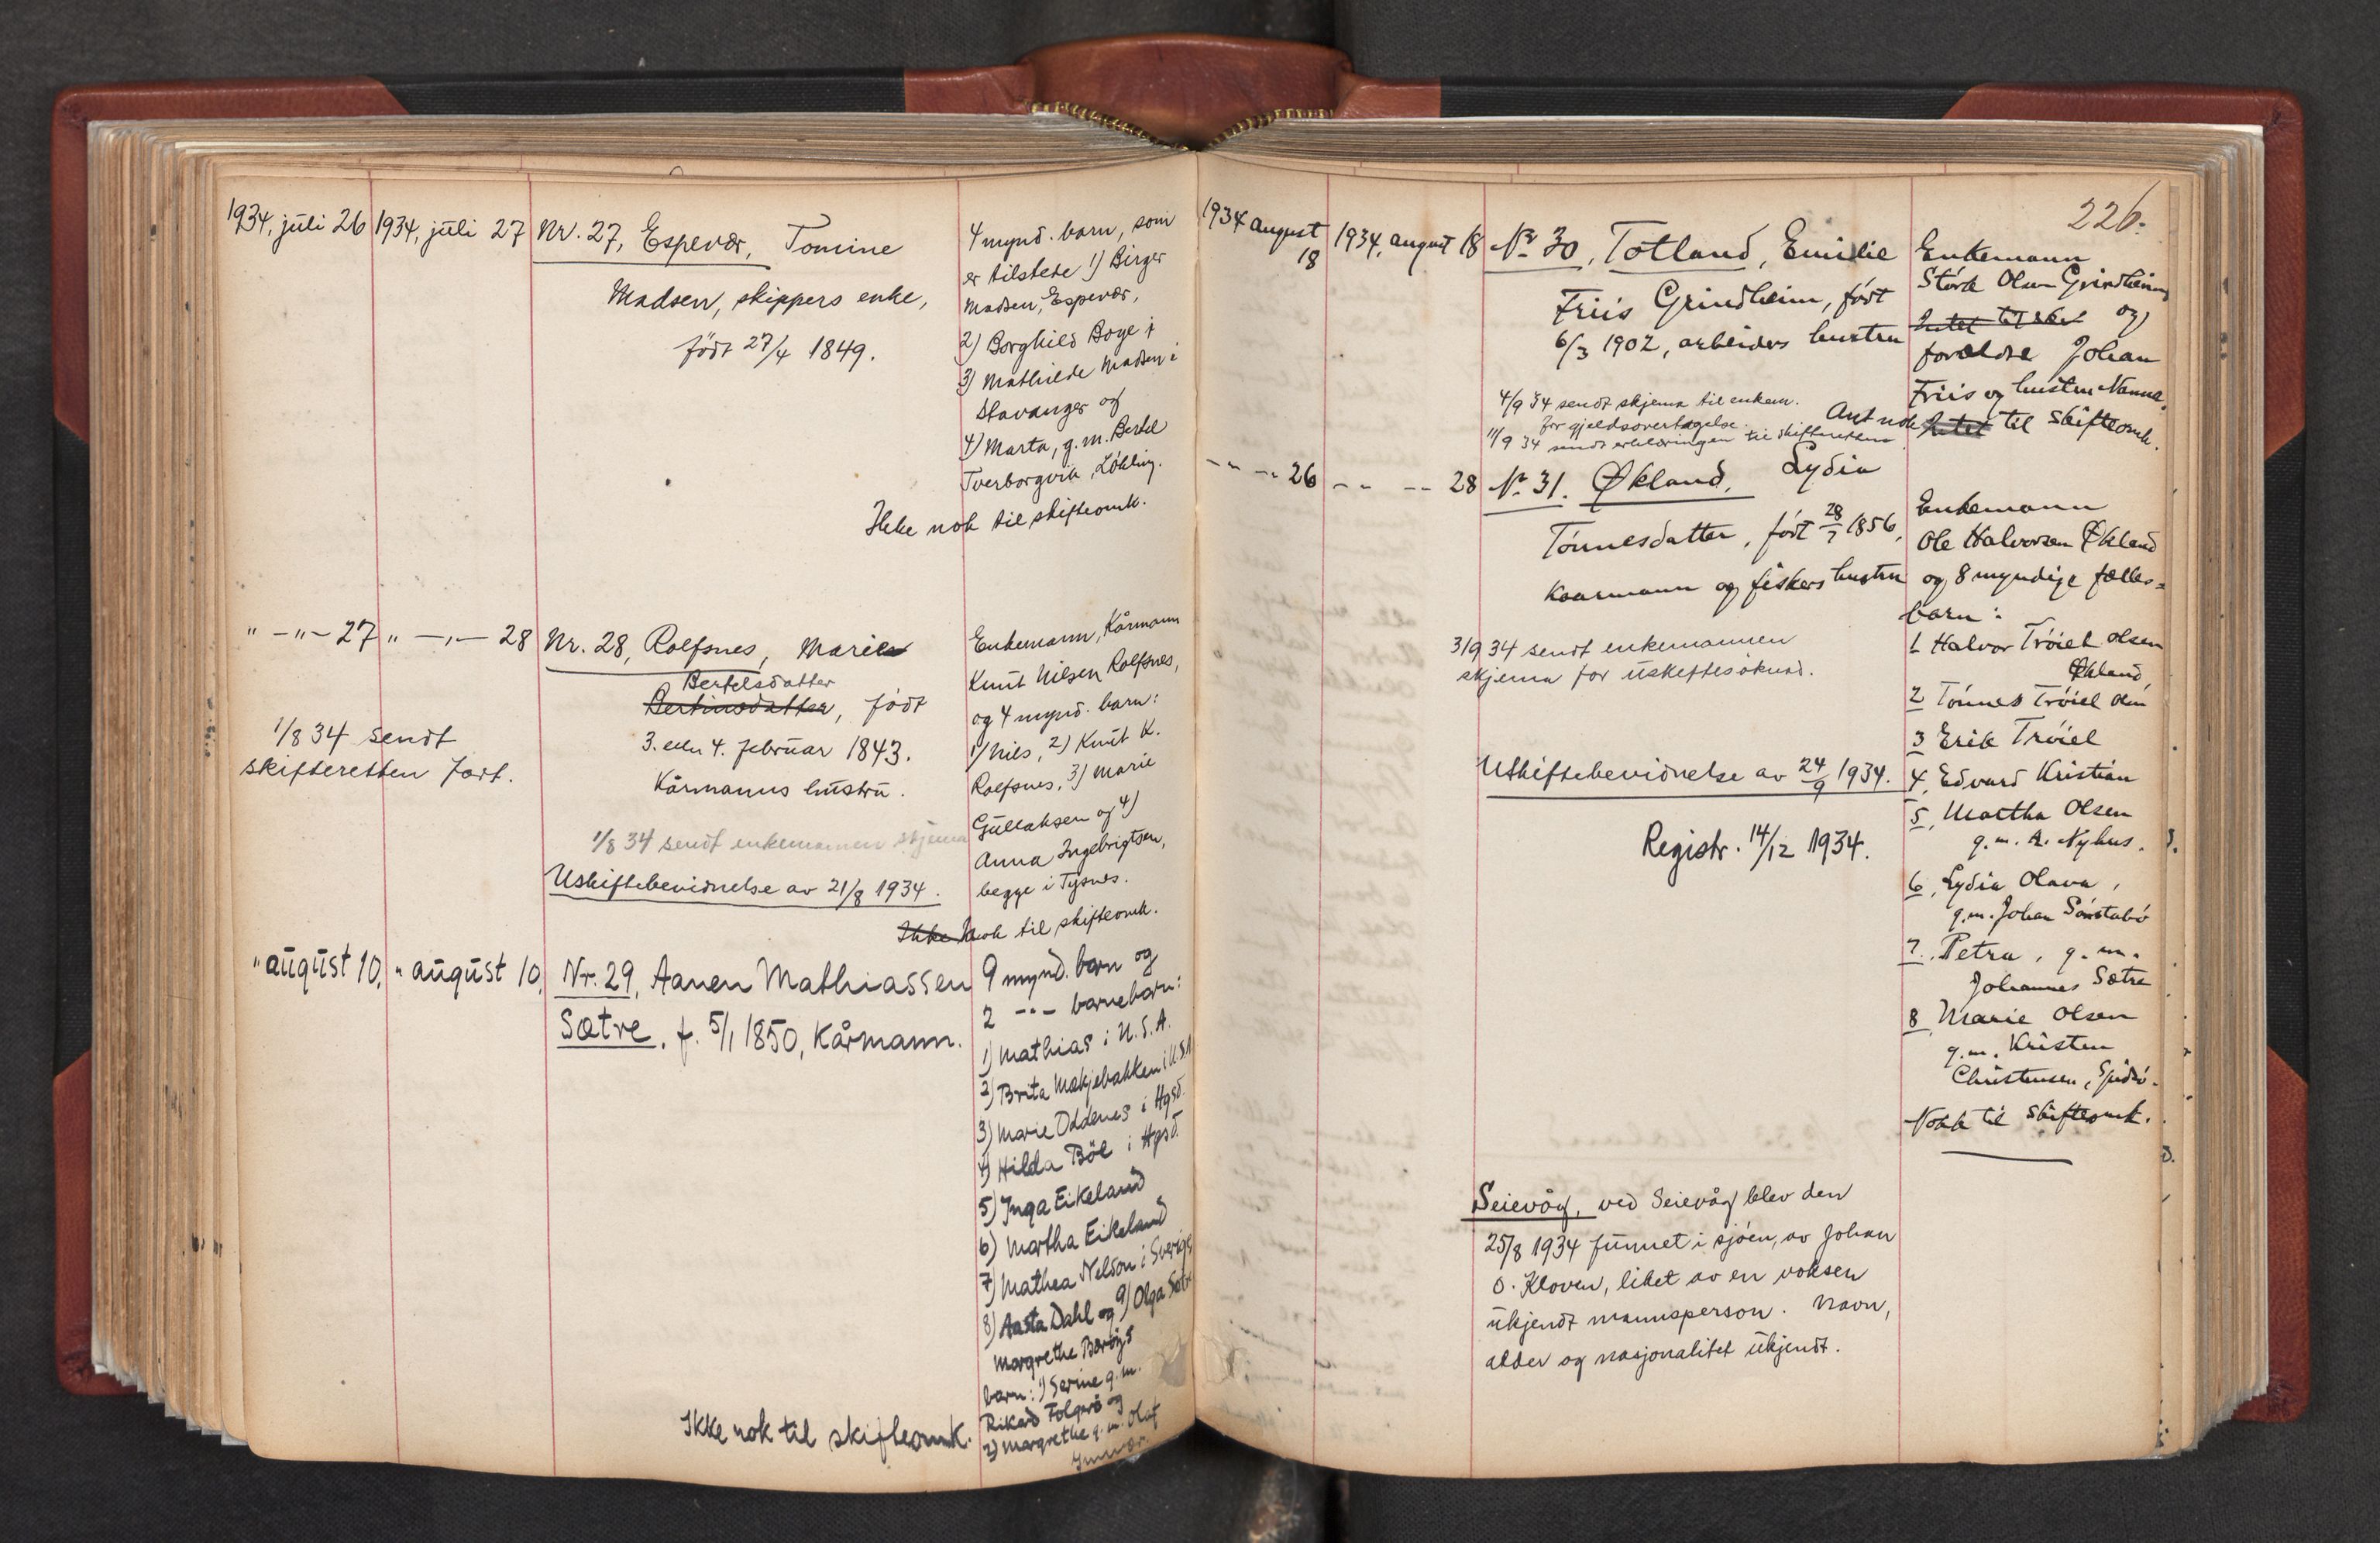 1934, juli 26
1934, juli 27
Nr. 27, Espevær, Tomine
Madsen, skippers enke,
født 27/4 1849.
4 mynd. barn, som
er tilstede 1) Birger
Madsen, Espevær,
2) Borghild Boge i
3) Mathilde Madsen i
Stavanger og
4) Marta, g.m. Bertel
Tverborgvik, Løkling.
Ikke nok til skifteomk.
" -"- 27
" -"- 28
Nr. 28, Rolfsnes, Marie
Bertelsdatter
Bertinsdatter, født
3. eller 4. februar 1843.
Kårmanns hustru.
1/8 34 sendt
skifteretten fort.
1/8 34 sendt enkemannen skjema
Uskiftebevidnelse av 21/8 1934.
Enkemann, Kårmann
Knut Nilsen Rolfsnes,
og 4 mynd. barn:
1) Nils, 2) Knut K.
Rolfsnes, 3) Marie
Gullaksen og 4)
Anna Ingebrigtsen,
begge i Tysnes.
Ikke Nok til skifteomk.
" august 10,
" august 10,
Nr. 29, Aanen Mathiassen
Sætre, f. 5/1 1850, Kårmann.
9 mynd. barn og
2 -"- barnebarn:
1) Mathias i U.S.A.
2) Brita Mækjebakken i U.S.A
3) Marie Oddenes i Hgsd.
4) Hilda Böe i Hgsd.
5) Inga Eikeland
6) Martha Eikeland
7) Mathea Nelson i Sverige
8) Aasta Dahl og 9) Olga
Margrethe Barøys
barn: 1) Serine g.m.
Rikard Folgerö og
2) Margrethe g.m. Olaf
Ikke nok til skifteomk.
226.
1934 august
18
1934, august 18
No 30, Totland, Emilie
Friis Grindheim, født
6/3 1902, arbeiders hustru
4/9 34 sendt skjema til enkem.
for gjeldsovertagelse.
11/9 34 sendt erklæringen til skifteretten
Enkemann
Olsen Grindheim
Intet til skif og
forældre Johan
Friis og hustru Nanna.
Ant nok Intet til skifteomk.
-"- -"- 26
-"- -- 28
No 31. Økland, Lydia
Tönnesdatter, født 28/7 1856,
kaarmann og fiskers hustru
3/9 34 sendt enkemannen
skjema for uskiftesöknad.
Uskiftebevidnelse av 24/9 1934.
Registr. 14/12 1934.
Enkemann
Ole Halvorsen Økland
og 8 myndige fælles-
barn:
1 Halvor Tröiel Olsen
Økland
2 Tönnes Tröiel Olsn
3 Erik Tröiel
4, Edvard Kristian
5, Martha Olsen
g.m. A. Nyhus.
6, Lydia Olava,
g.m. Johan Sörstabö
7., Petra, g.m.
Johannes Sætre
8 Marie Olsen
g.m. Kristen
Christensen,
Nokk til skifteomk.
Seievåg, ved Seievåg blev den
25/8 1934 funnet i sjöen, av Johan
O. Kloven, liket av en voksen
ukjendt mannsperson. Navn,
alder og nasjonalitet ukjendt.